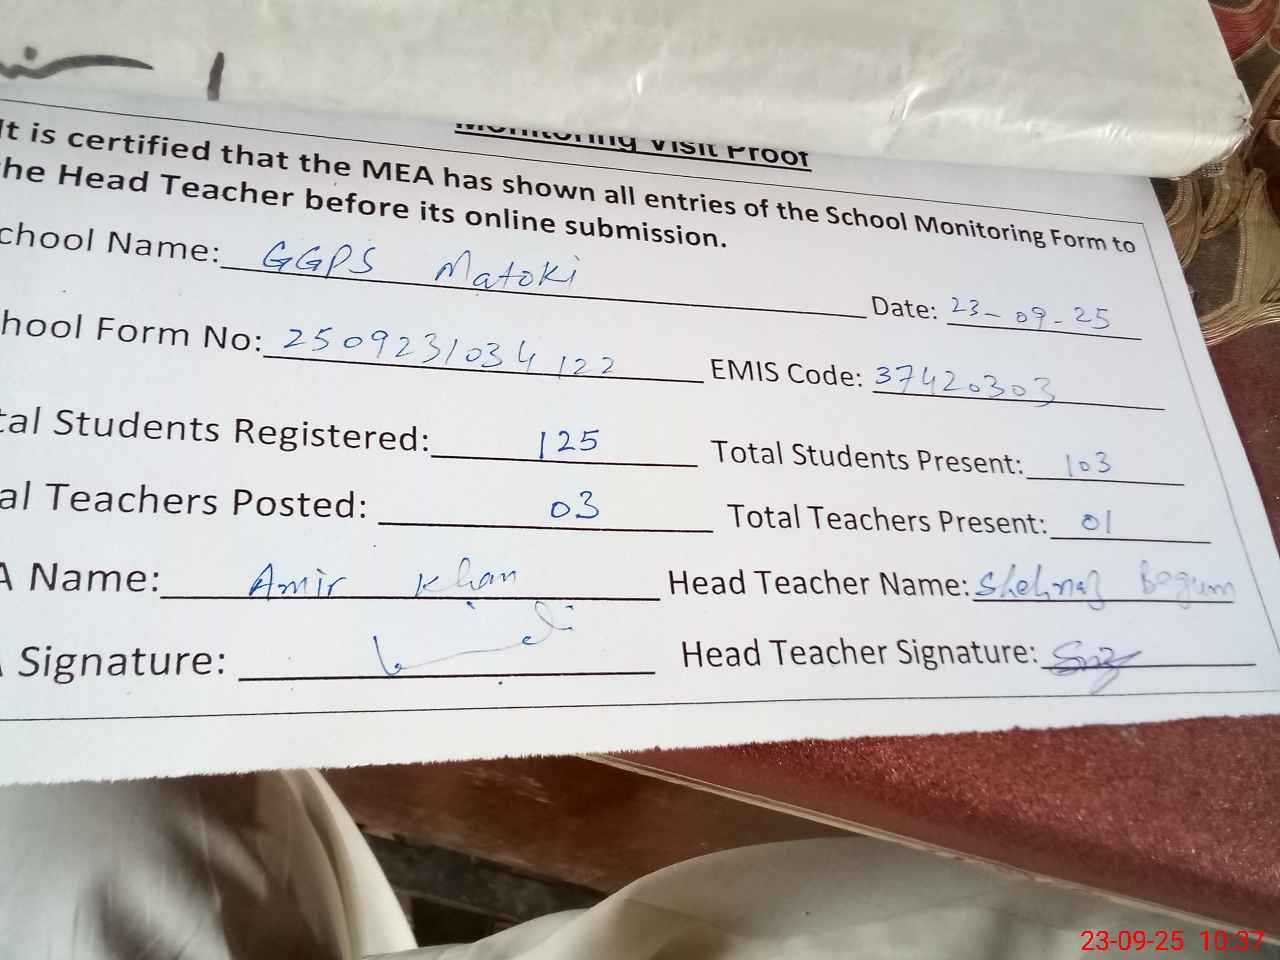 Monitoring Visit Proof
It is certified that the MEA has shown all entries of the School Monitoring Form to
he Head Teacher before its online submission.
chool Name: GGPS Matoki
Date: 23-09-25
hool Form No: 2509231034122
EMIS Code: 37420303
tal Students Registered: 125 Total Students Present: 103
al Teachers Posted: 03 Total Teachers Present: 01
A Name: Amir Khan Head Teacher Name: Shehnaz Begum
Signature: Head Teacher Signature:
23-09-25 10:37